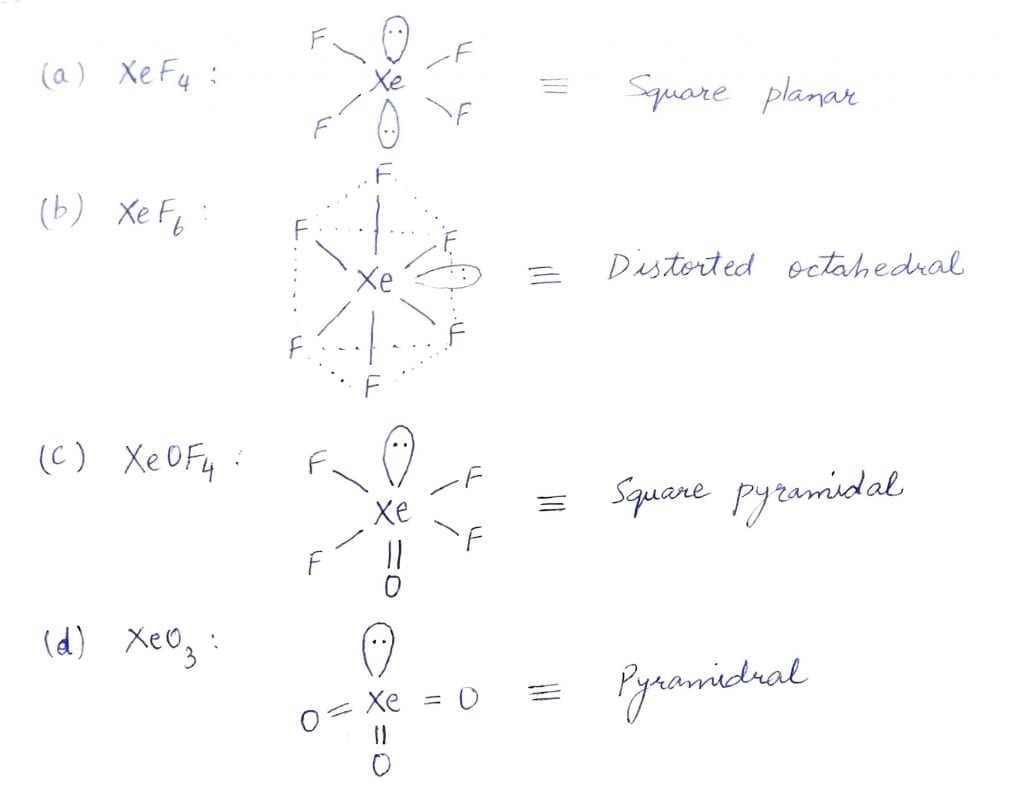 (a) XeF₄ : F Xe F F F ≡ Square planar
(b) XeF₆ : F F F Xe F F F ≡ Distorted octahedral
(c) XeOF₄ : F F Xe F F O ≡ Square pyramidal
(d) XeO₃ : O = Xe = O O ≡ Pyramidral